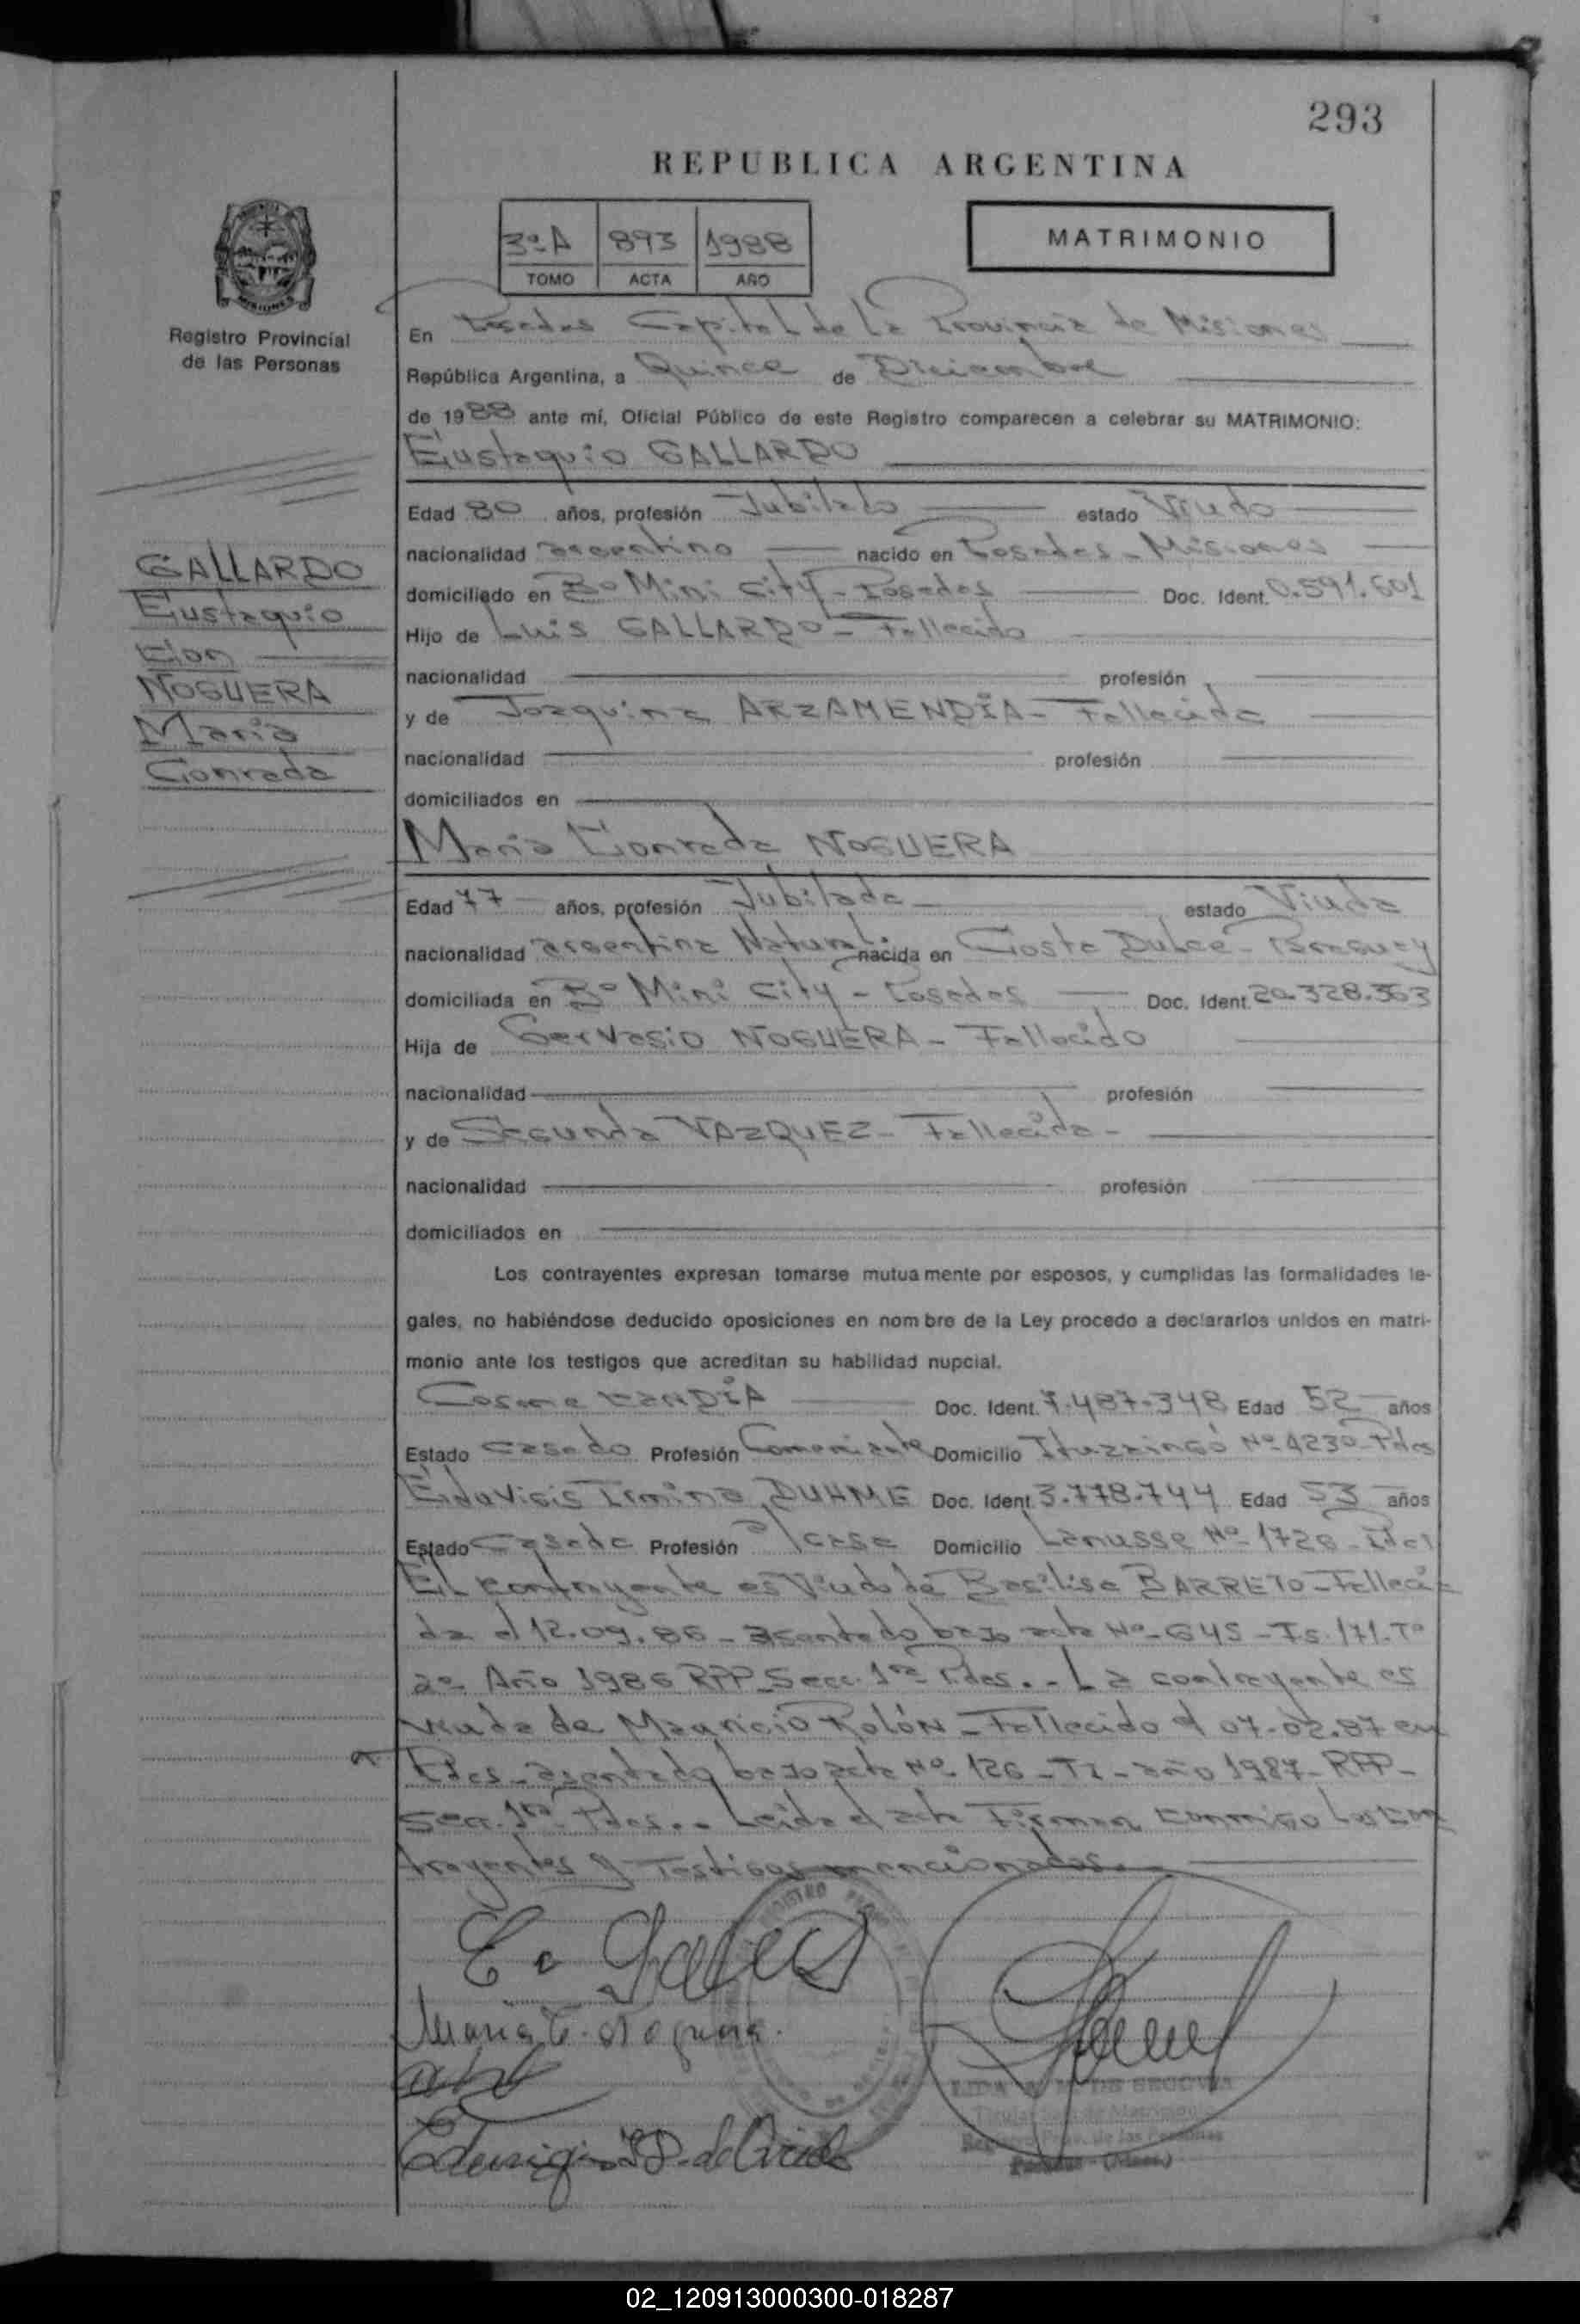 293
REPUBLICA ARGENTINA
3º A 893 1988
TOMO ACTA AÑO
MATRIMONIO
Registro Provincial
de las Personas
En Posadas Capital de la Provincia de Misiones
República Argentina, a Quince de Diciembre
de 1988 ante mí, Oficial Público de este Registro comparecen a celebrar su MATRIMONIO:
Eustaquio GALLARDO
Edad 80 años, profesión Jubilado estado Viudo
nacionalidad argentino nacido en Posadas - Misiones
domiciliado en Bº Mini City - Posadas Doc. Ident. 0.591.601
Hijo de Luis GALLARDO - Fallecido
nacionalidad profesión
y de Joaquina ARZAMENDIA - Fallecida
nacionalidad profesión
domiciliados en
GALLARDO
Eustaquio
Con
NOGUERA
Maria
Conrada
Maria Conrada NOGUERA
Edad 77 años, profesión Jubilada estado Viuda
nacionalidad argentina Natural. nacida en Costa Dulce - Paraguay
domiciliada en Bº Mini City - Posadas Doc. Ident. 20.328.363
Hija de Gervasio NOGUERA - Fallecido
nacionalidad profesión
y de Segunda VAZQUEZ - Fallecida -
nacionalidad profesión
domiciliados en
Los contrayentes expresan tomarse mutuamente por esposos, y cumplidas las formalidades le-
gales, no habiéndose deducido oposiciones en nombre de la Ley procedo a declararlos unidos en matri-
monio ante los testigos que acreditan su habilidad nupcial.
Cosme CANDIA Doc. Ident. 7.487.348 Edad 52 años
Estado Casado Profesión Comerciante Domicilio Ituzaingó Nº 4230 - Pdas
Irmina DUHME Doc. Ident. 3.778.744 Edad 53 años
Estado Casada Profesión casa Domicilio Lanusse Nº 1726 - Pdas
El contrayente es Viudo de Basilisa BARRETO - Falleci-
da el 12.09.86 - asentado bajo acta Nº 645 - Fs. 171. Tº
2º Año 1986 RPP - Secc. 1ra Pdas. - La contrayente es
viuda de Mauricio Rolón - Fallecido el 07-02.87 en
Pdas - asentado bajo acta Nº 126 - año 1987 - RPP -
Secc. 1ra Pdas. - Leida el acta Firman conmigo los con
trayentes y Testigos mencionados.
Maria C. Noguera.
DE SEGOVIA
Registro Prov. de las Personas
Posadas - (Mnes.)
02_120913000300-018287